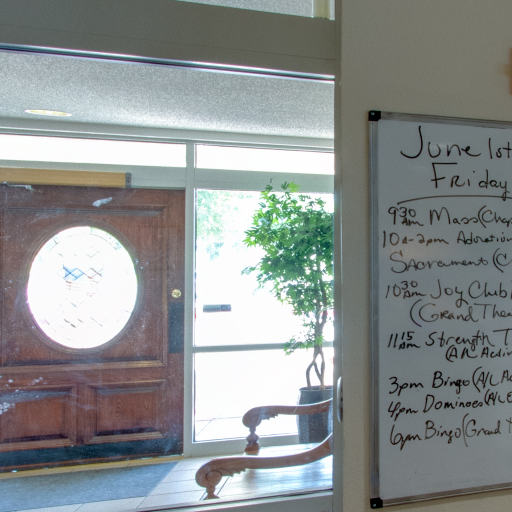 June 1st
Friday
930 am Mass (Chap
10a-2pm Adoration
Sacrament (C
1030 am Joy Club
(Grand Thea
1115 am Strength T
(A/L Activi
3pm Bingo (A/L Ac
4pm Dominoes (A/L
6pm Bingo (Grand